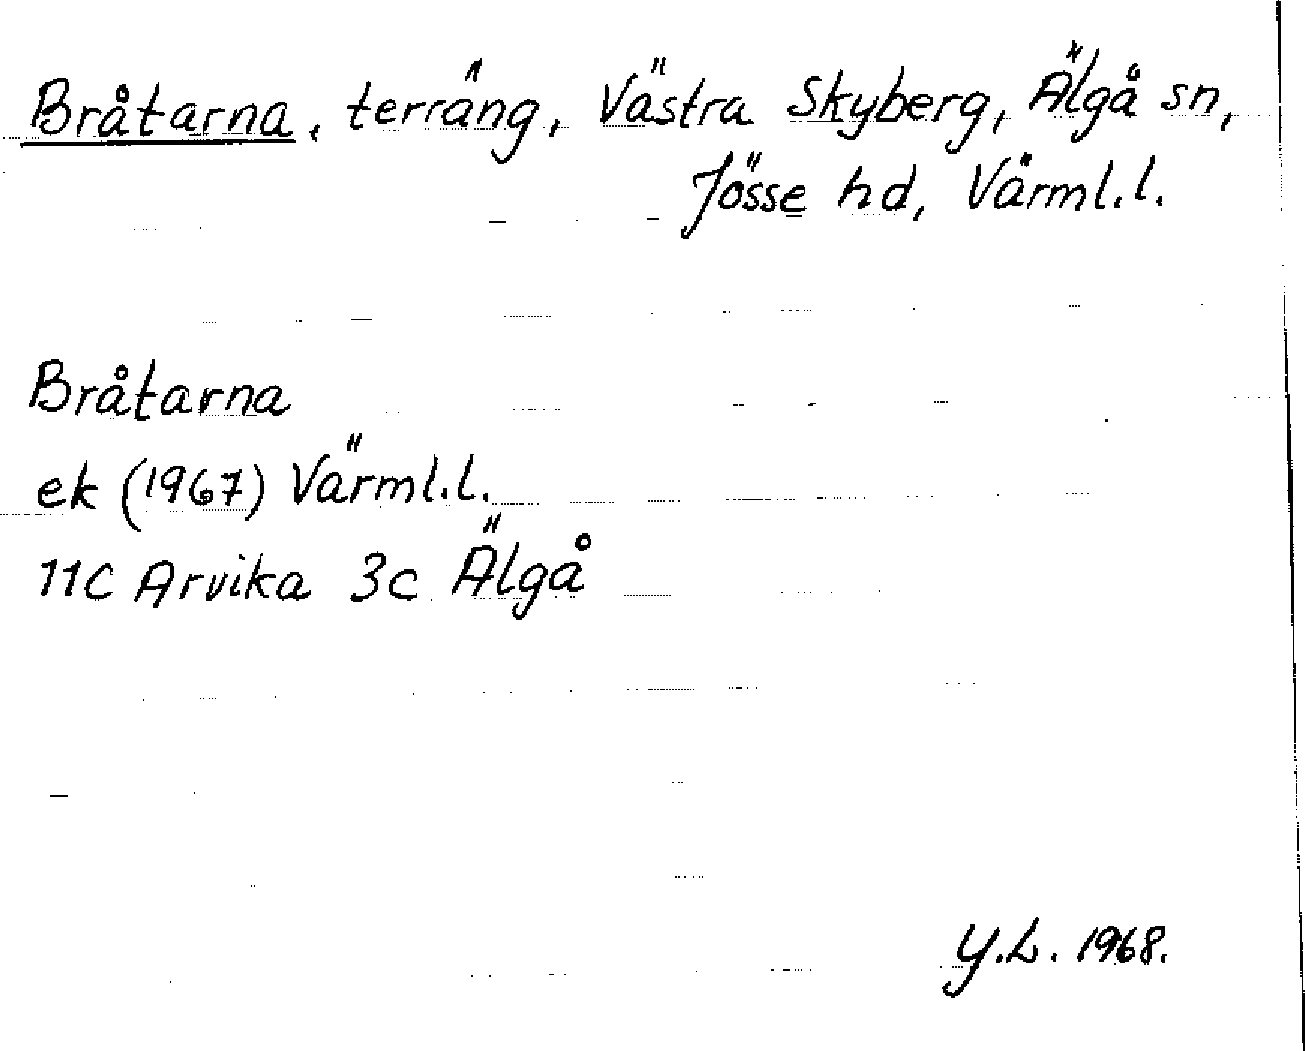 Bråtarna, terräng, Västra Skyberg, Älgå sn,
Jösse hd, Värml.l.
Bråtarna
ek (1967) Värml.l.
11C Arvika 3c Älgå
Y.L. 1968.